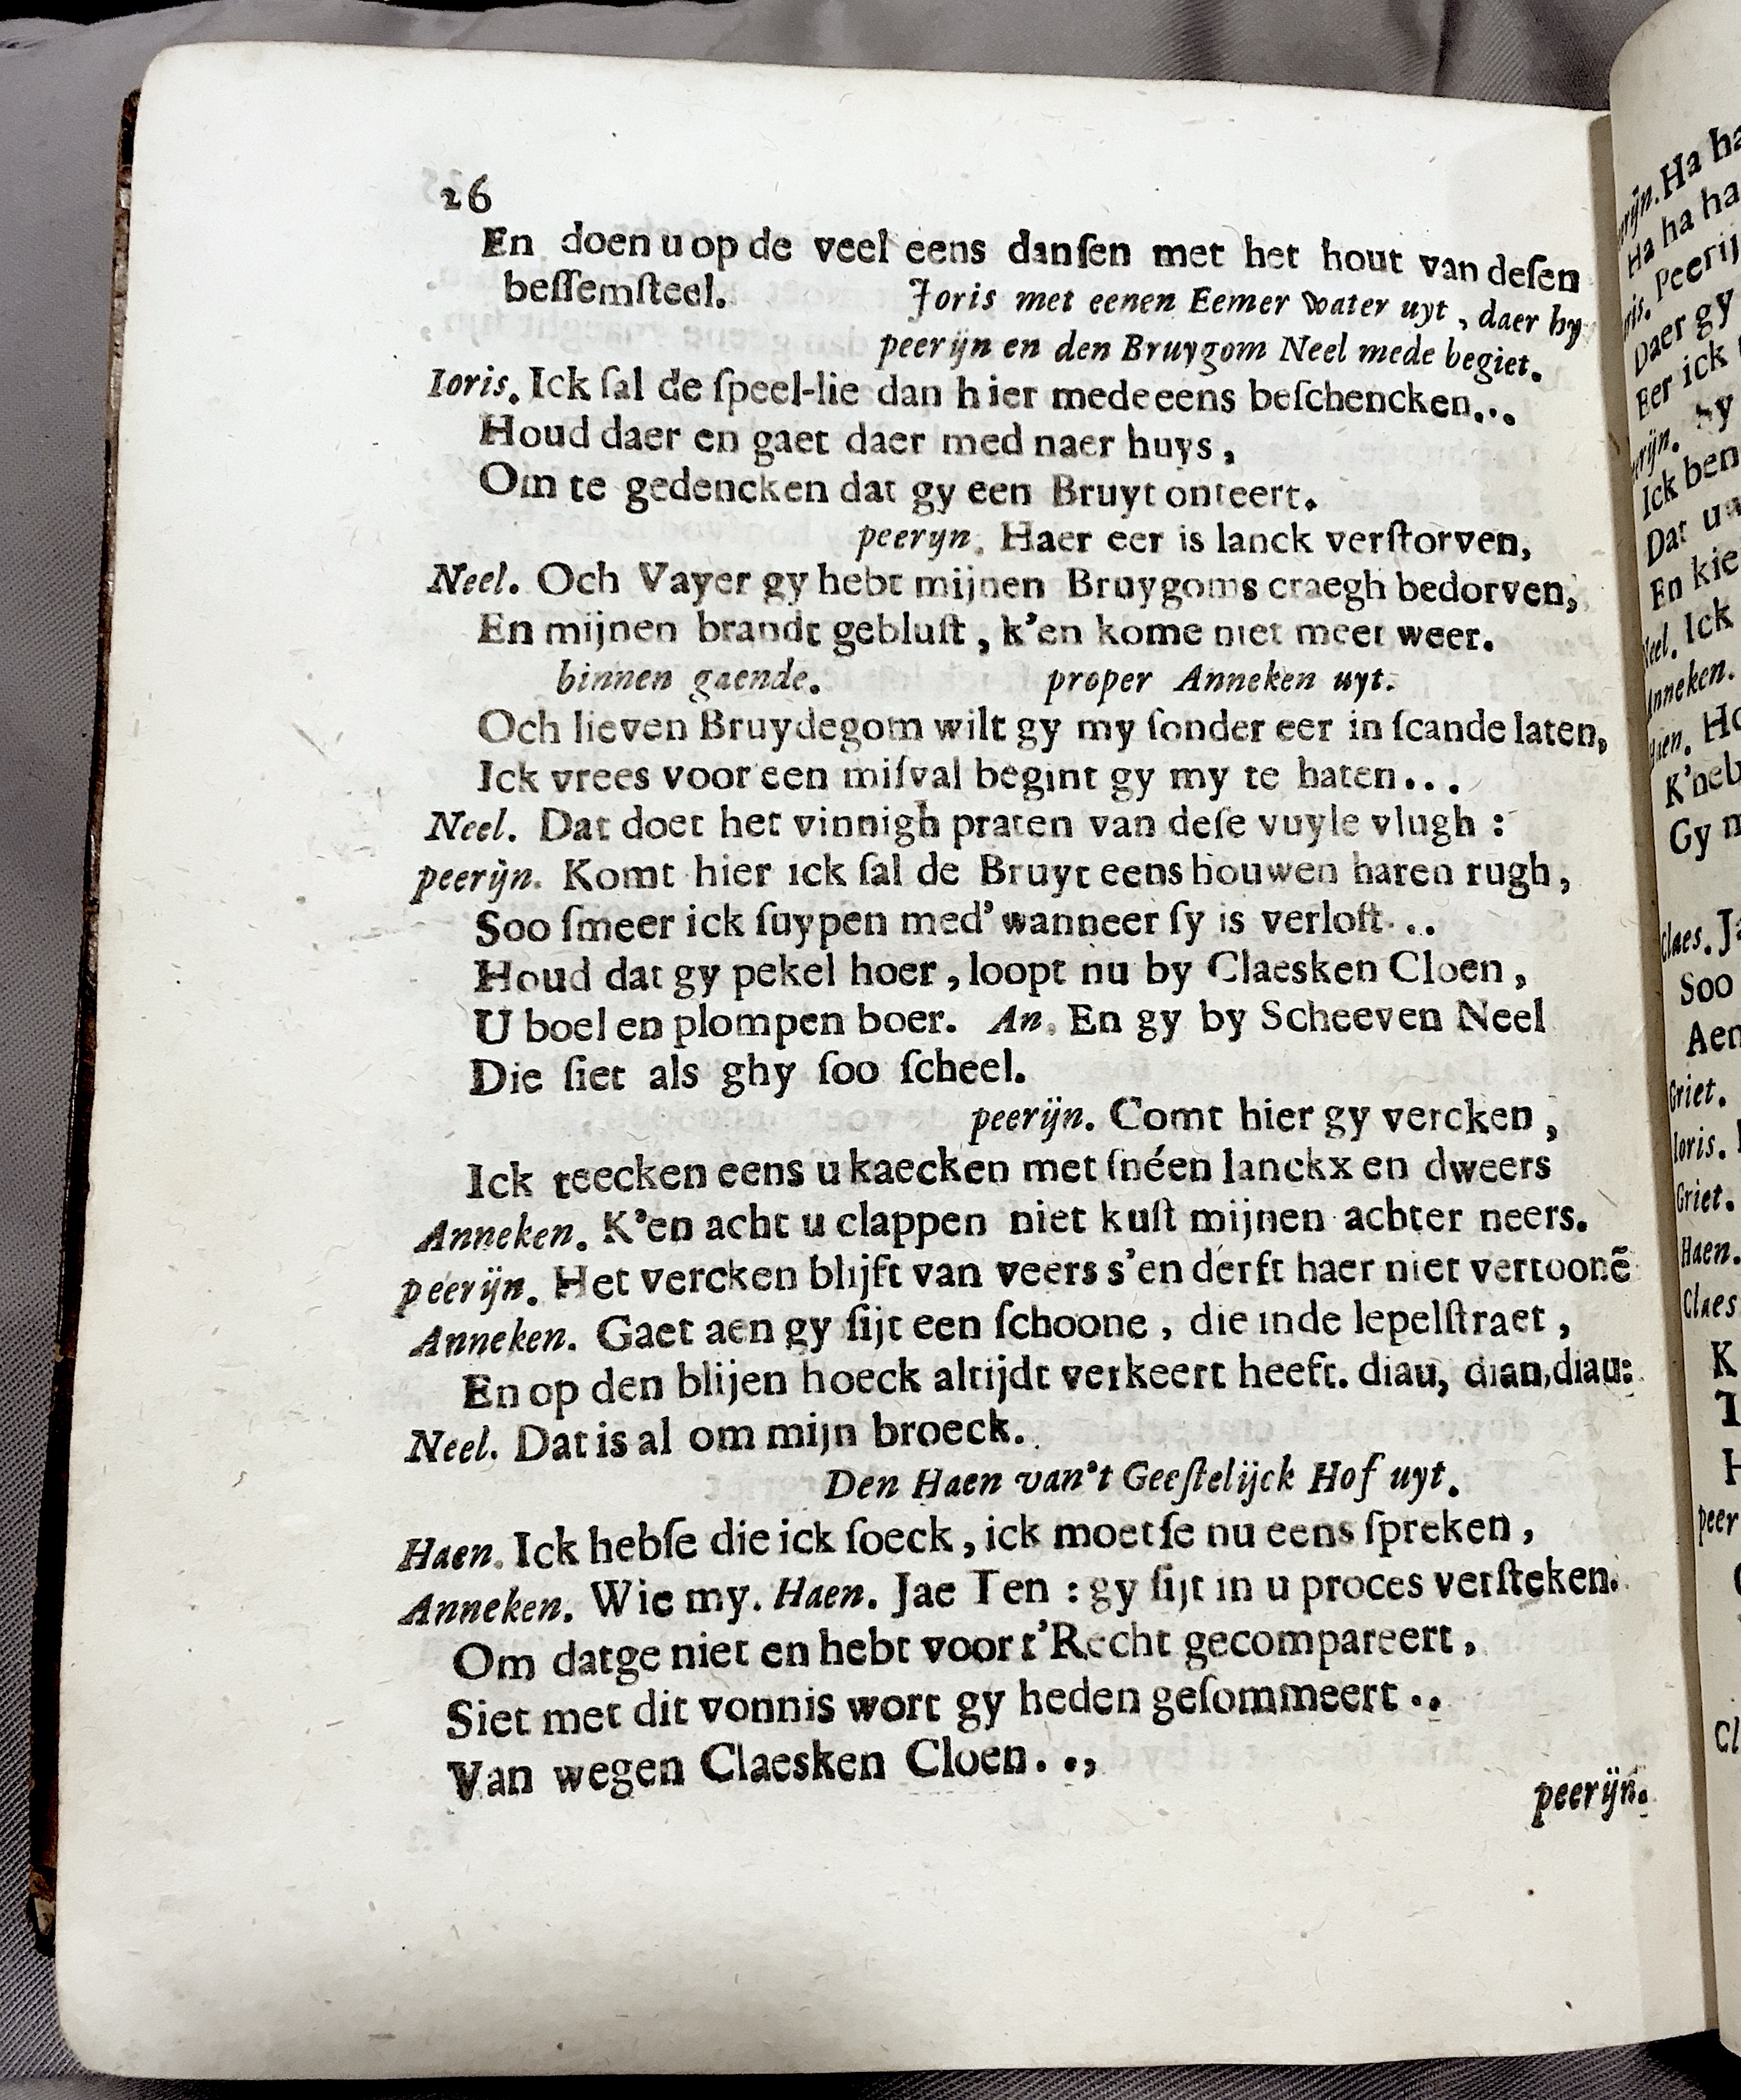 26
En doen u op de veel eens danſen met het hout van deſen
beſſemſteel. Joris met eenen Eemer water uyt, daer hy
peerijn en den Bruygom Neel mede begiet.
Ioris. Ick ſal de ſpeel-lie dan hier mede eens beſchencken...
Houd daer en gaet daer med naer huys,
Om te gedencken dat gy een Bruyt onteert.
peeryn. Haer eer is lanck verſtorven,
Neel. Och Vayer gy hebt mijnen Bruygoms craegh bedorven,
En mijnen brandt gebluſt, k'en kome niet meer weer.
binnen gaende. proper Anneken uyt.
Och lieven Bruydegom wilt gy my ſonder eer in ſcande laten,
Ick vrees voor een miſval begint gy my te haten...
Neel. Dat doet het vinnigh praten van deſe vuyle vlugh:
peerijn. Komt hier ick ſal de Bruyt eens houwen haren rugh,
Soo ſmeer ick ſuypen med' wanneer ſy is verloſt...
Houd dat gy pekel hoer, loopt nu by Claesken Cloen,
U boel en plompen boer. An. En gy by Scheeven Neel
Die ſiet als ghy ſoo ſcheel.
peerijn. Comt hier gy vercken,
Ick teecken eens u kaecken met ſnéen lanckx en dweers
Anneken. K'en acht u clappen niet kuſt mijnen achter neers.
peerijn. Het vercken blijft van veers s'en derft haer niet vertoonẽ
Anneken. Gaet aen gy ſijt een ſchoone, die inde lepelſtraet,
En op den blijen hoeck altijdt verkeert heeft. diau, dian, diau:
Neel. Dat is al om mijn broeck.
Den Haen van't Geeſtelijck Hof uyt.
Haen. Ick hebſe die ick ſoeck, ick moetſe nu eens ſpreken,
Anneken. Wie my. Haen. Jae Ten: gy ſijt in u proces verſteken.
Om datge niet en hebt voor t'Recht gecompareert,
Siet met dit vonnis wort gy heden geſommeert..
Van wegen Claesken Cloen..,
peerijn.
Ha ha
Ha ha ha
Peerij
Daer gy
Eer ick
Ick ben
Dat
En kie
Ick
Anneken.
K'neb
Gy
Claes.
Soo
Aen
Griet.
Ioris.
Griet.
Haen.
Claes
K
peer
Cl